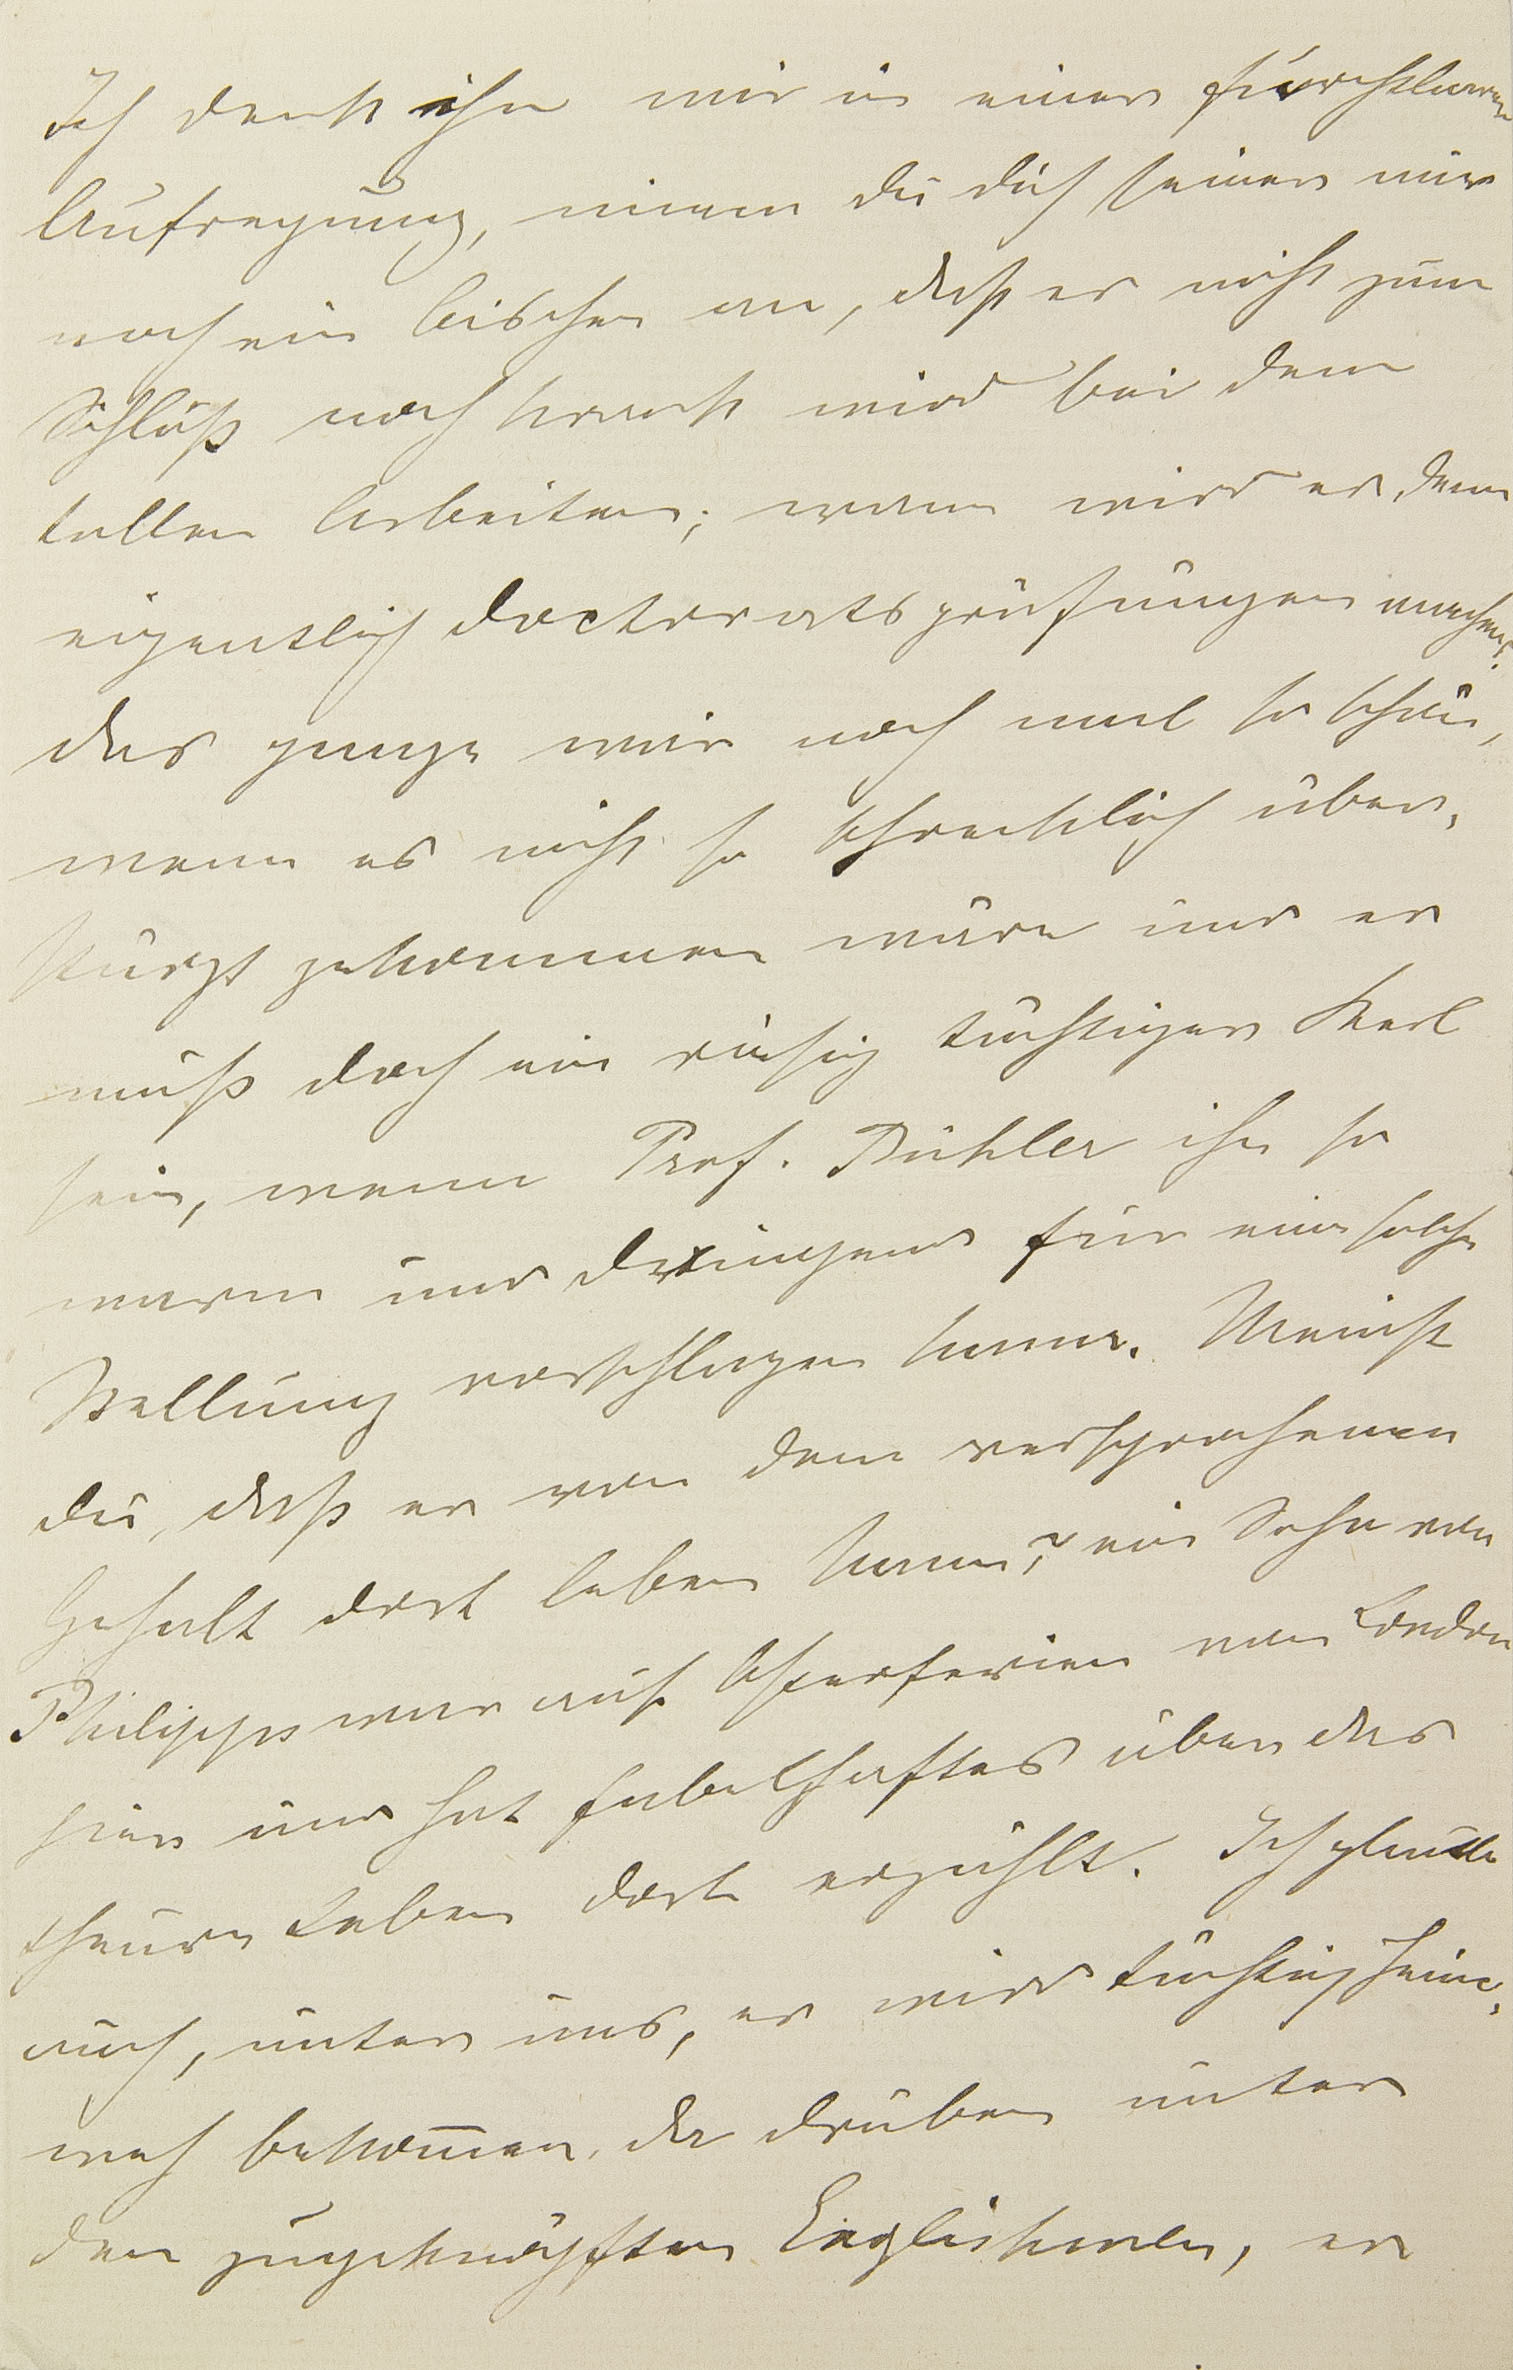 Ich denk ihn mir in einer furchtbaren
Aufregung, nimm du dich seiner nur
noch ein bischen an, daß er nicht zum
Schluß noch krank wird bei dem
tollen Arbeiten; wann wird er denn
eigentlich Doctoratsprüfungen machen?
das ganze wär noch mal so schön,
wenn es nicht so schrecklich über-
stürzt gekommen wäre und er
muß doch ein riesig tüchtiger Kerl
sein, wenn Prof. Bühler ihn so
warm und dringend für eine solche
Stellung vorschlagen kann. Meinst
du, daß er von dem versprochenen
Gehalt dort leben kann? ein Sohn von
Philipps war auf Osterferien von London
hier und hat fabelhaftes über das
theure Leben dort erzählt. Ich glaube
auch, unter uns, er wird tüchtig Heim-
weh bekom̅en, da drüben unter
den zugeknöpften Englishmen, er